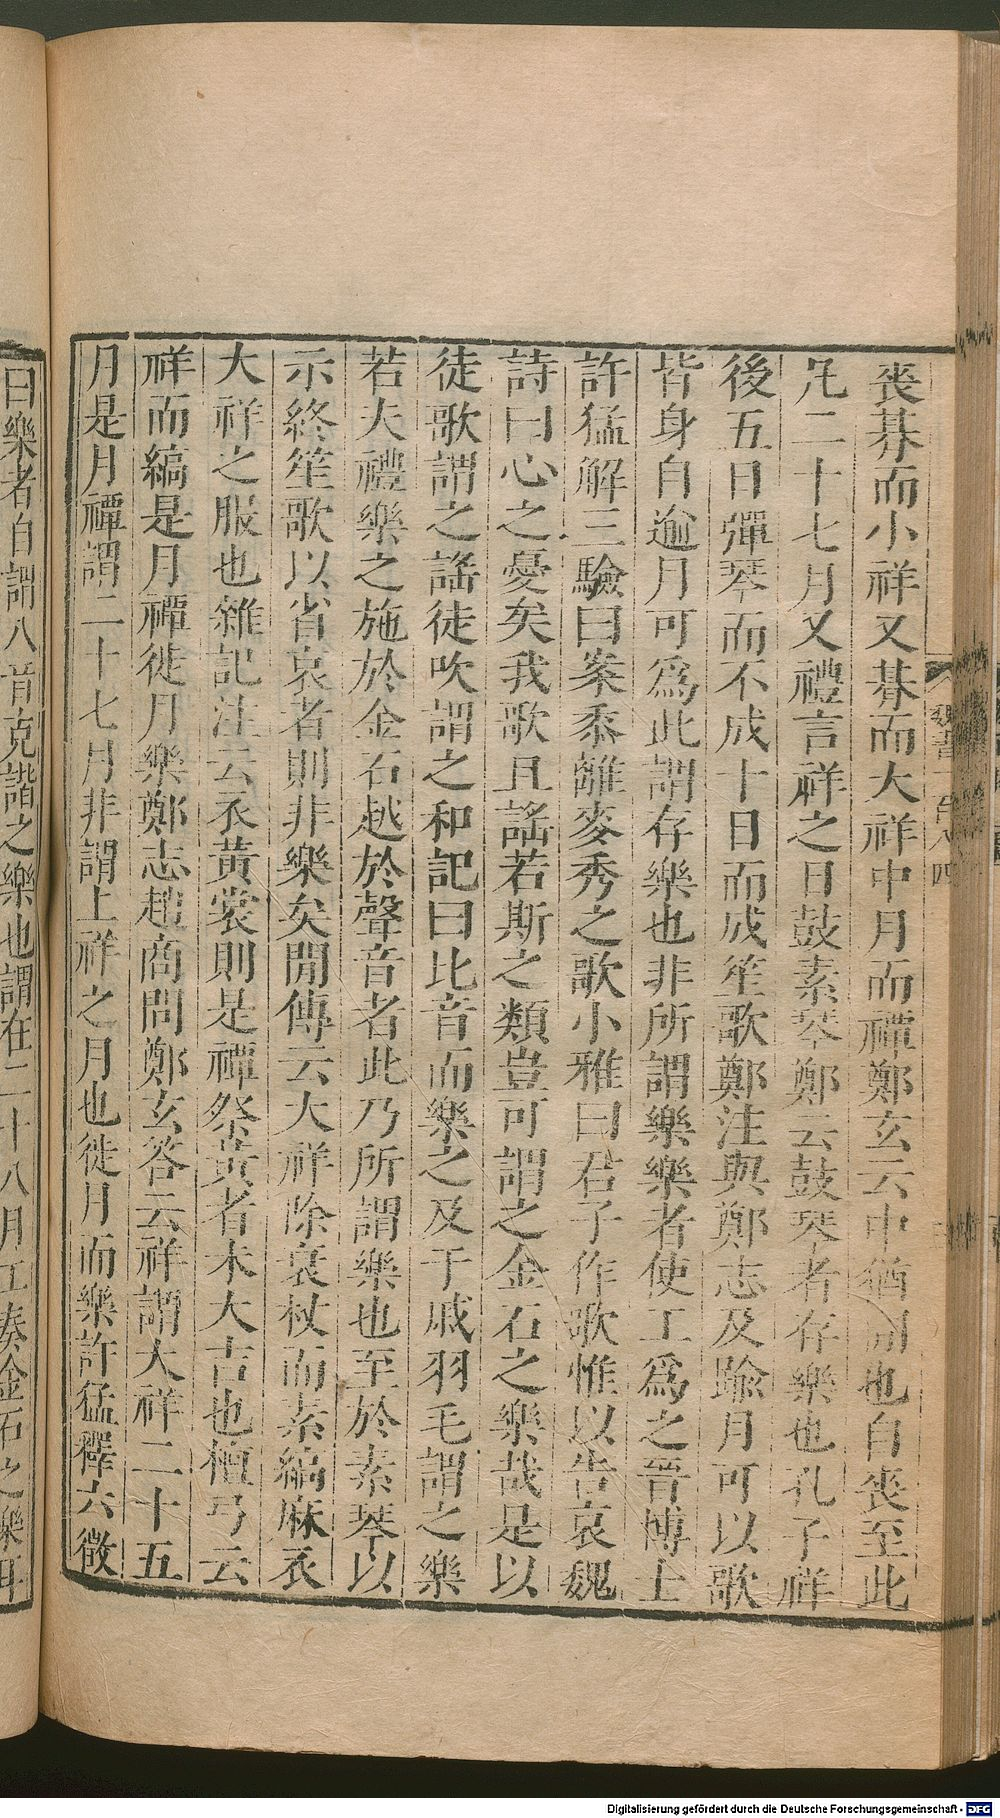 喪朞而小祥又朞而大祥中月而禫鄭玄云中猶間也自喪至此
凡二十七月又禮言祥之日鼓素琴鄭云鼓琴者存樂也孔子祥
後五日彈琴而不成十日而成笙歌鄭注與鄭志及踰月可以歌
皆身自逾月可爲此謂存樂也非所謂樂樂者使工爲之晉博士
許猛解三驗曰案黍離麥秀之歌小雅曰君子作歌惟以告哀魏
詩曰心之憂矣我歌且謠若斯之類豈可謂之金石之樂哉是以
徒歌謂之謠徒吹謂之和記曰比音而樂之及干戚羽毛謂之樂
若夫禮樂之施於金石越於聲音者此乃所謂樂也至於素琴以
示終笙歌以省哀者則非樂矣閒傳云大祥除衰杖而素縞麻衣
大祥之服也雜記注云衣黃裳則是禫祭黃者未大吉也檀弓云
祥而縞是月禫徙月樂鄭志趙商問鄭玄答云祥謂大祥二十五
月是月禫謂二十七月非謂上祥之月也徙月而樂許猛釋六徵
曰樂者自謂八音克諧之樂也謂在二十八月工奏金石之樂耳
魏書一百八四
Digitalisierung gefördert durch die Deutsche Forschungsgemeinschaft - DFG